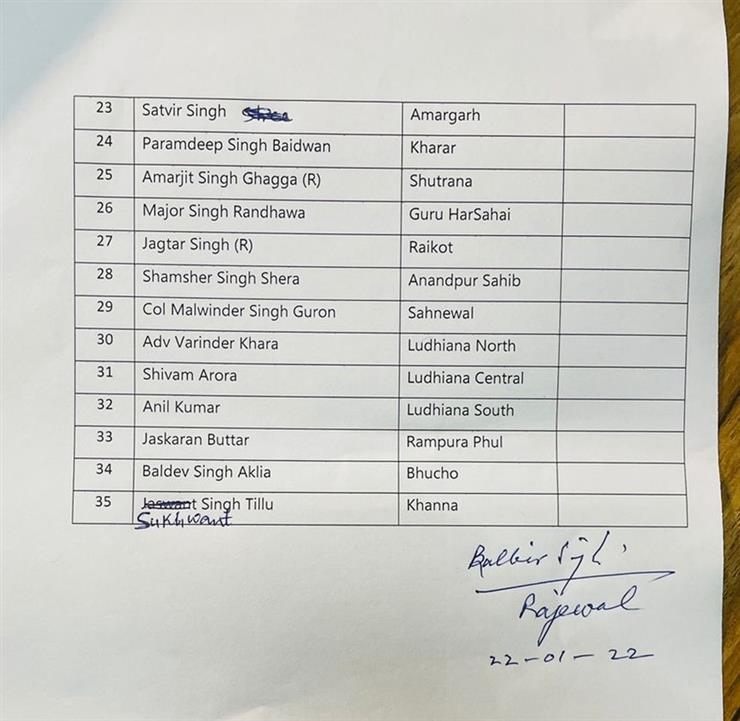 23 Satvir Singh Amargarh
24 Paramdeep Singh Baidwan Kharar
25 Amarjit Singh Ghagga (R) Shutrana
26 Major Singh Randhawa Guru HarSahai
27 Jagtar Singh (R) Raikot
28 Shamsher Singh Shera Anandpur Sahib
29 Col Malwinder Singh Guron Sahnewal
30 Adv Varinder Khara Ludhiana North
31 Shivam Arora Ludhiana Central
32 Anil Kumar Ludhiana South
33 Jaskaran Buttar Rampura Phul
34 Baldev Singh Aklia Bhucho
35 Jaswant Singh Tillu Khanna
Sukhwant
Balbir Singh
Rajewal
22-01-22